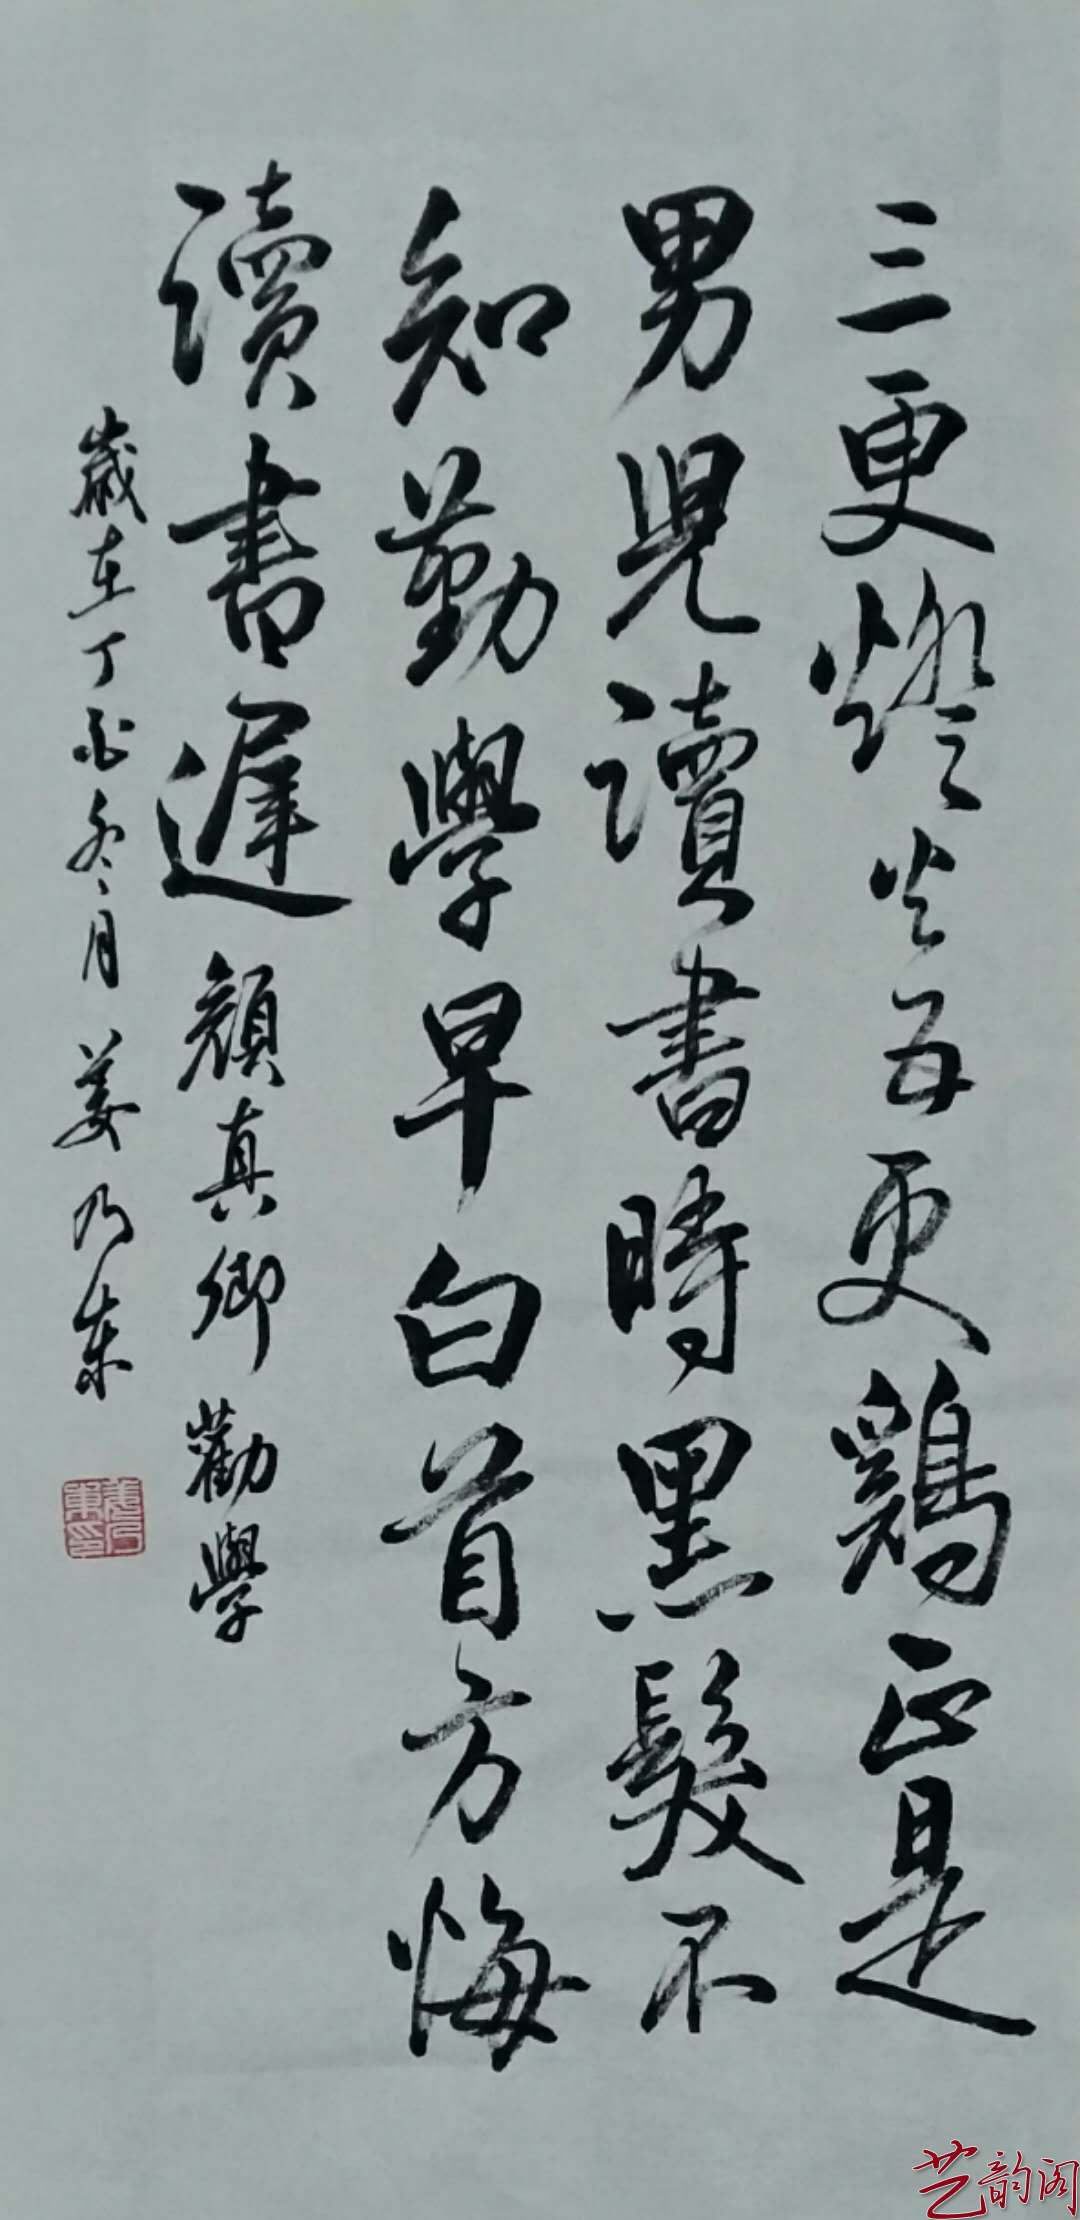 三更燈火五更鷄正是
男兒讀書時黑髮不
知勤學早白首方悔
讀書遲 顏真卿 勸學
歲在丁酉冬月 姜乃東
艺韵阁